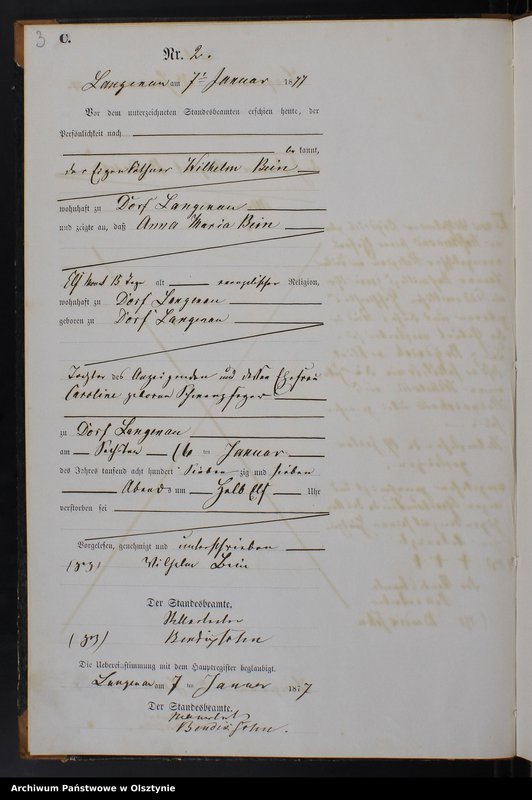 3
C.
Nr. 2.
Langenau am 7t Januar 1877
Vor dem unterzeichneten Standesbeamten erschien heute, der
Persönlichkeit nach
be kannt,
der Eigenkäthner Wilhelm Bein
wohnhaft zu Dorf Langenau
und zeigte an, daß Anna Maria Bein
Elf Monat 15 Tage alt evangelischer Religion,
wohnhaft zu Dorf Langenau
geboren zu Dorf Langenau
Tochter des Anzeigenden und dessen Ehefrau
Caroline geborene
zu Dorf Langenau
am Sechsten (6 ten Januar
des Jahres tausend acht hundert sieben zig und sieben
Abends um Halb Elf Uhr
verstorben sei
Vorgelesen, genehmigt und unterschrieben
Wilhelm Bein
Der Standesbeamte.
Bendixsohn
Die Uebereinstimmung mit dem Hauptregister beglaubigt.
Langenau am 7 ten Januar 1877
Der Standesbeamte.
Bendixsohn.
Archiwum Państwowe w Olsztynie